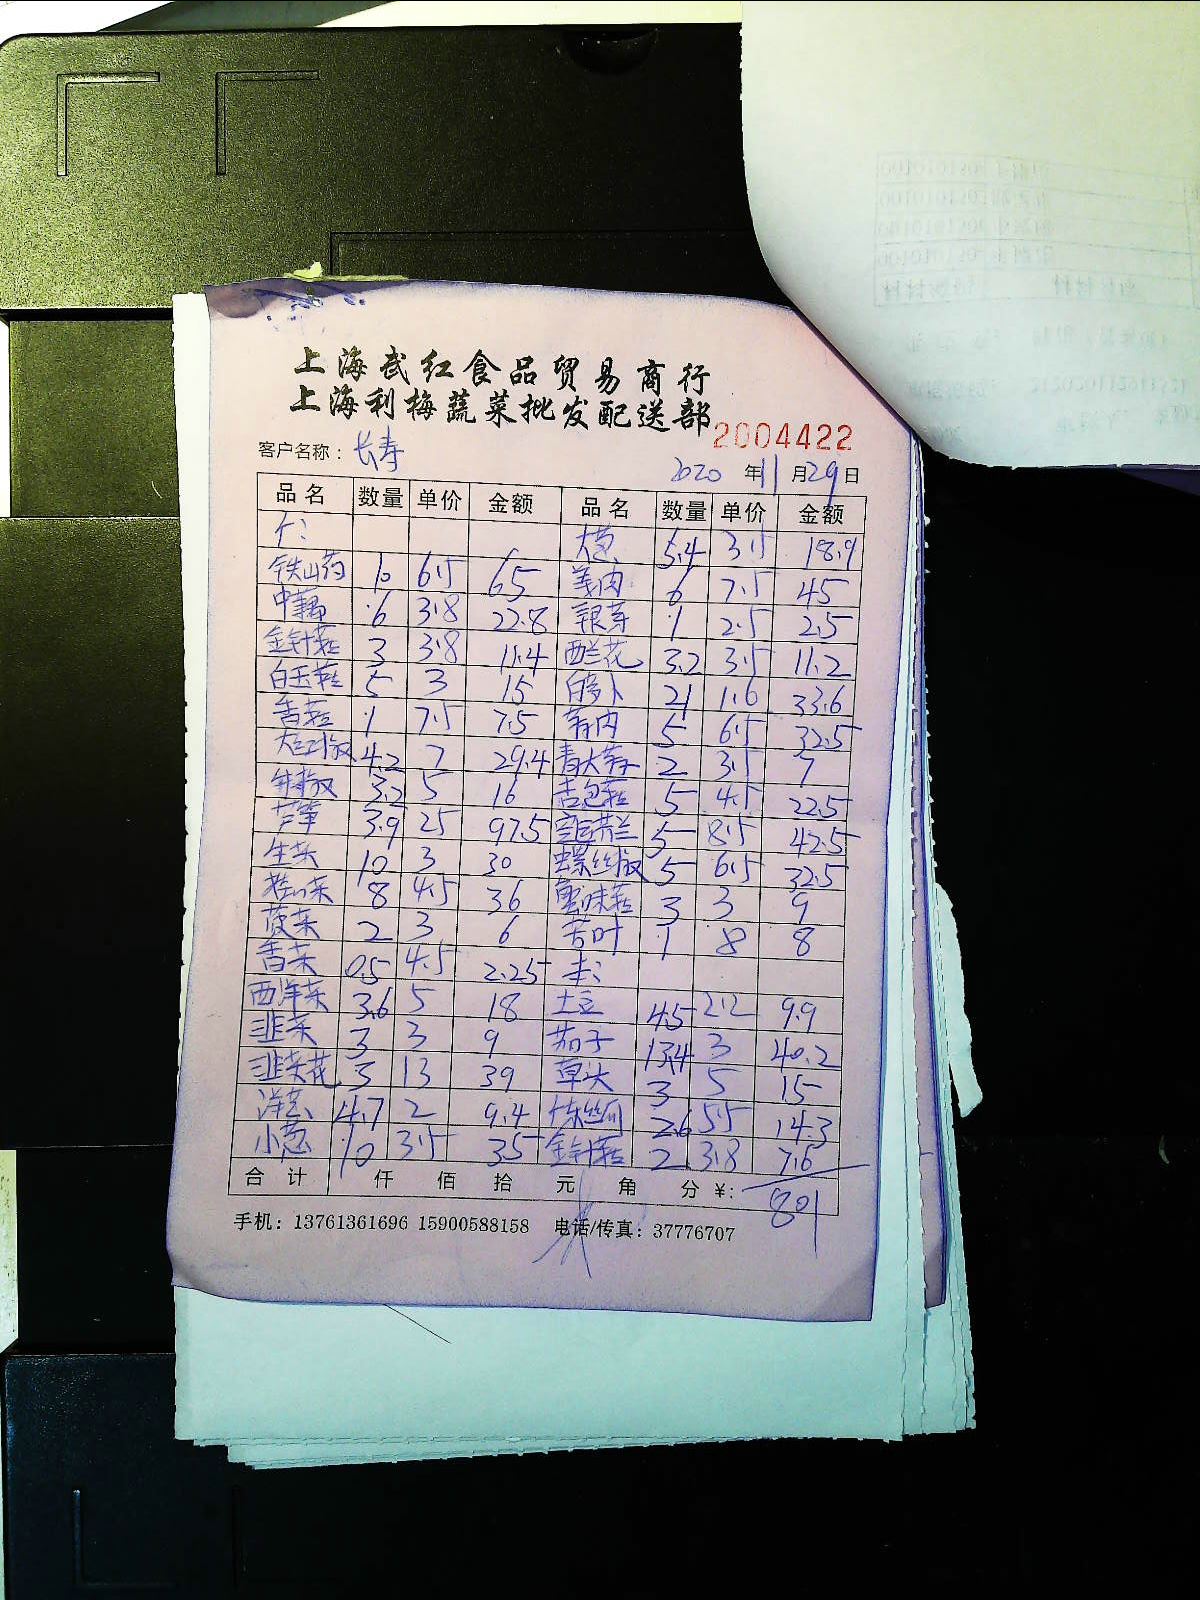 上海武红食品贸易商行
上海利梅蔬菜批发配送部
2004422
客户名称：长寿
2020 年 11 月 29 日
品名 数量 单价 金额 品名 数量 单价 金额
大葱 5.4 3.5 18.9
铁山药 10 6.5 65 姜肉 6 7.5 45
中藕 6 3.8 22.8 银芽 1 2.5 2.5
金针菇 3 3.8 11.4 西兰花 3.2 3.5 11.2
白玉菇 5 3 15 白萝卜 21 1.6 33.6
香菇 1 7.5 7.5 蒜肉 5 6.5 32.5
大红椒 4.2 7 29.4 青大蒜 2 3.5 7
3.2 5 16 杏鲍菇 5 4.5 22.5
芦笋 3.9 25 97.5 5 8.5 42.5
生菜 10 3 30 螺丝椒 5 6.5 32.5
8 4.5 36 蟹味菇 3 3 9
菠菜 2 3 6 1 8 8
香菜 0.5 4.5 2.25
西洋菜 3.6 5 18 土豆 4.5 2.2 9.9
韭菜 3 3 9 茄子 13.4 3 40.2
韭菜花 3 13 39 草头 3 5 15
洋葱 4.7 2 9.4 2.6 5.5 14.3
小葱 10 3.5 35 金针菇 2 3.8 7.6
合计 仟 佰 拾 元 角 分 ¥： 801
手机：13761361696 15900588158 电话/传真：37776707